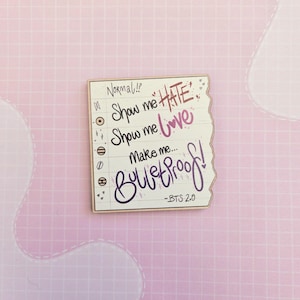 Normal!!
Show me "HATE"
Show me love
Make me...
BulletProof!
-BTS 2.0